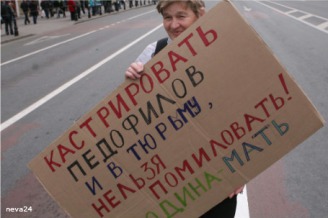 КАСТРИРОВАТЬ
ПЕДОФИЛОВ
И В ТЮРЬМУ,
НЕЛЬЗЯ
ПОМИЛОВАТЬ!
РОДИНА-МАТЬ
neva24